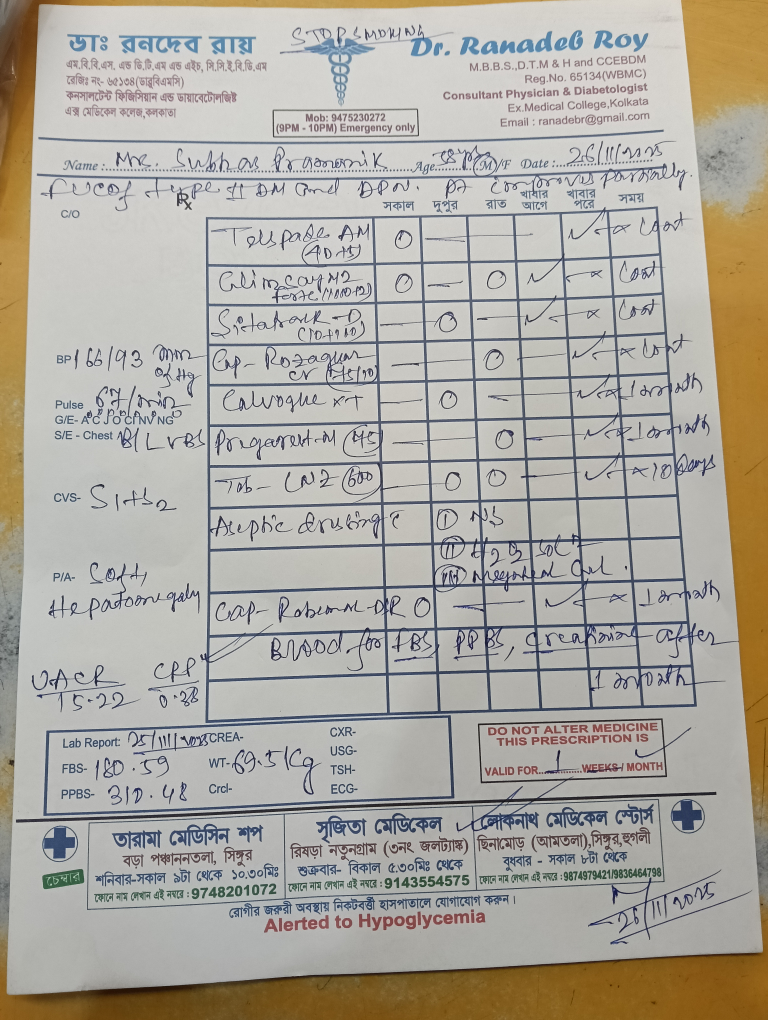 STOP SMOKING
ডাঃ রনদেব রায়
Dr. Ranadeb Roy
এম.বি.বি.এস. এন্ড ডি.টি.এম এন্ড এইচ, সি.সি.ই.বি.ডি.এম
রেজিঃ নং- ৬৫১৩৪(ডাব্লুবিএমসি)
কনসালটেন্ট ফিজিসিয়ান এন্ড ডায়াবেটোলজিষ্ট
এক্স মেডিকেল কলেজ,কলকাতা
M.B.B.S.,D.T.M & H and CCEBDM
Reg.No. 65134(WBMC)
Consultant Physician & Diabetologist
Ex.Medical College,Kolkata
Email : ranadebr@gmail.com
Mob: 9475230272
(9PM - 10PM) Emergency only
Name : Mr. Subhas Pramanik Age (M)/F Date : 26/11/2025
type II DM and DPN. Pt improves partially.
C/O Rx সকাল দুপুর রাত খাবার আগে খাবার পরে সময়
AM (40+5) O — — ✓ × Cont
forte (1000+2) O — O ✓ — × Cont
— O — ✓ — × Cont
BP 166/93 mm of Hg
Cap- CR — O ✓ × Cont
Pulse 67/min
XT — O — ✓ × 1 month
G/E- A C J O CI NV NG
S/E - Chest B/L VBS
M (75) — O — ✓ × 1 month
CVS- S1+S2
Tab- LNZ (600) — O O — ✓ × 10 Days
Aseptic dressing c (I) NS
(II) H2O2 Sol
P/A- Soft, (III) Megaheal Gel.
Hepatomegaly
Cap- O — ✓ × 1 month
Blood for FBS, PPBS, Creatinine after
1 month
UACR 15.22
0.38
Lab Report: 25/11/2025 CREA- CXR-
FBS- 180.59 WT- 69.5 Kg USG-
TSH-
PPBS- 310.48 Crcl- ECG-
DO NOT ALTER MEDICINE
THIS PRESCRIPTION IS
VALID FOR 1 WEEKS / MONTH
চেম্বার
তারামা মেডিসিন শপ
বড়া পঞ্চাননতলা, সিঙ্গুর
শনিবার-সকাল ৯টা থেকে ১০.৩০মিঃ
ফোনে নাম লেখান এই নম্বরে : 9748201072
সৃজিতা মেডিকেল
রিষড়া নতুনগ্রাম (৩নং জলট্যাঙ্ক)
শুক্রবার- বিকাল ৫.৩০মিঃ থেকে
ফোনে নাম লেখান এই নম্বরে : 9143554575
লোকনাথ মেডিকেল স্টোর্স
ছিনামোড় (আমতলা),সিঙ্গুর,হুগলী
বুধবার - সকাল ৮টা থেকে
ফোনে নাম লেখান এই নম্বরে : 9874979421/9836464798
রোগীর জরুরী অবস্থায় নিকটবর্ত্তী হাসপাতালে যোগাযোগ করুন।
Alerted to Hypoglycemia
26/11/2025